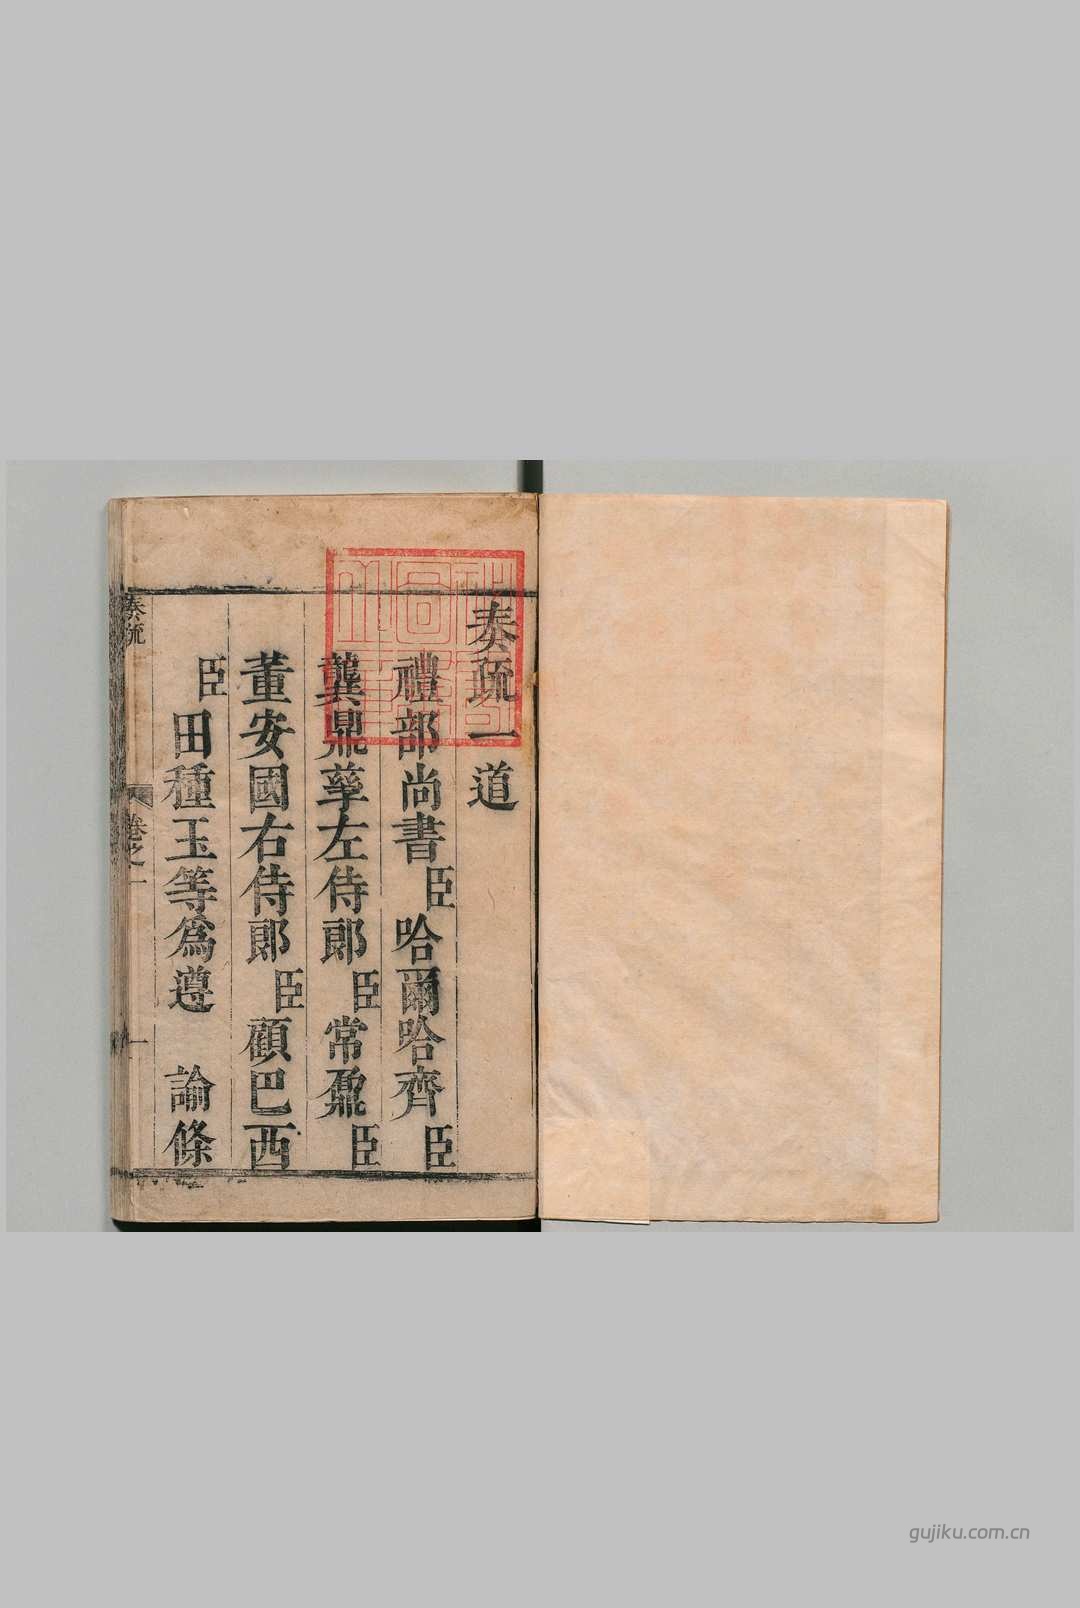 奏疏一道
禮部尚書臣哈爾哈齊臣
龔鼎孳左侍郎臣常鼐臣
董安國右侍郎臣顧巴西
臣田種玉等為遵　諭條
奏疏
卷之一
一
gujiku.com.cn